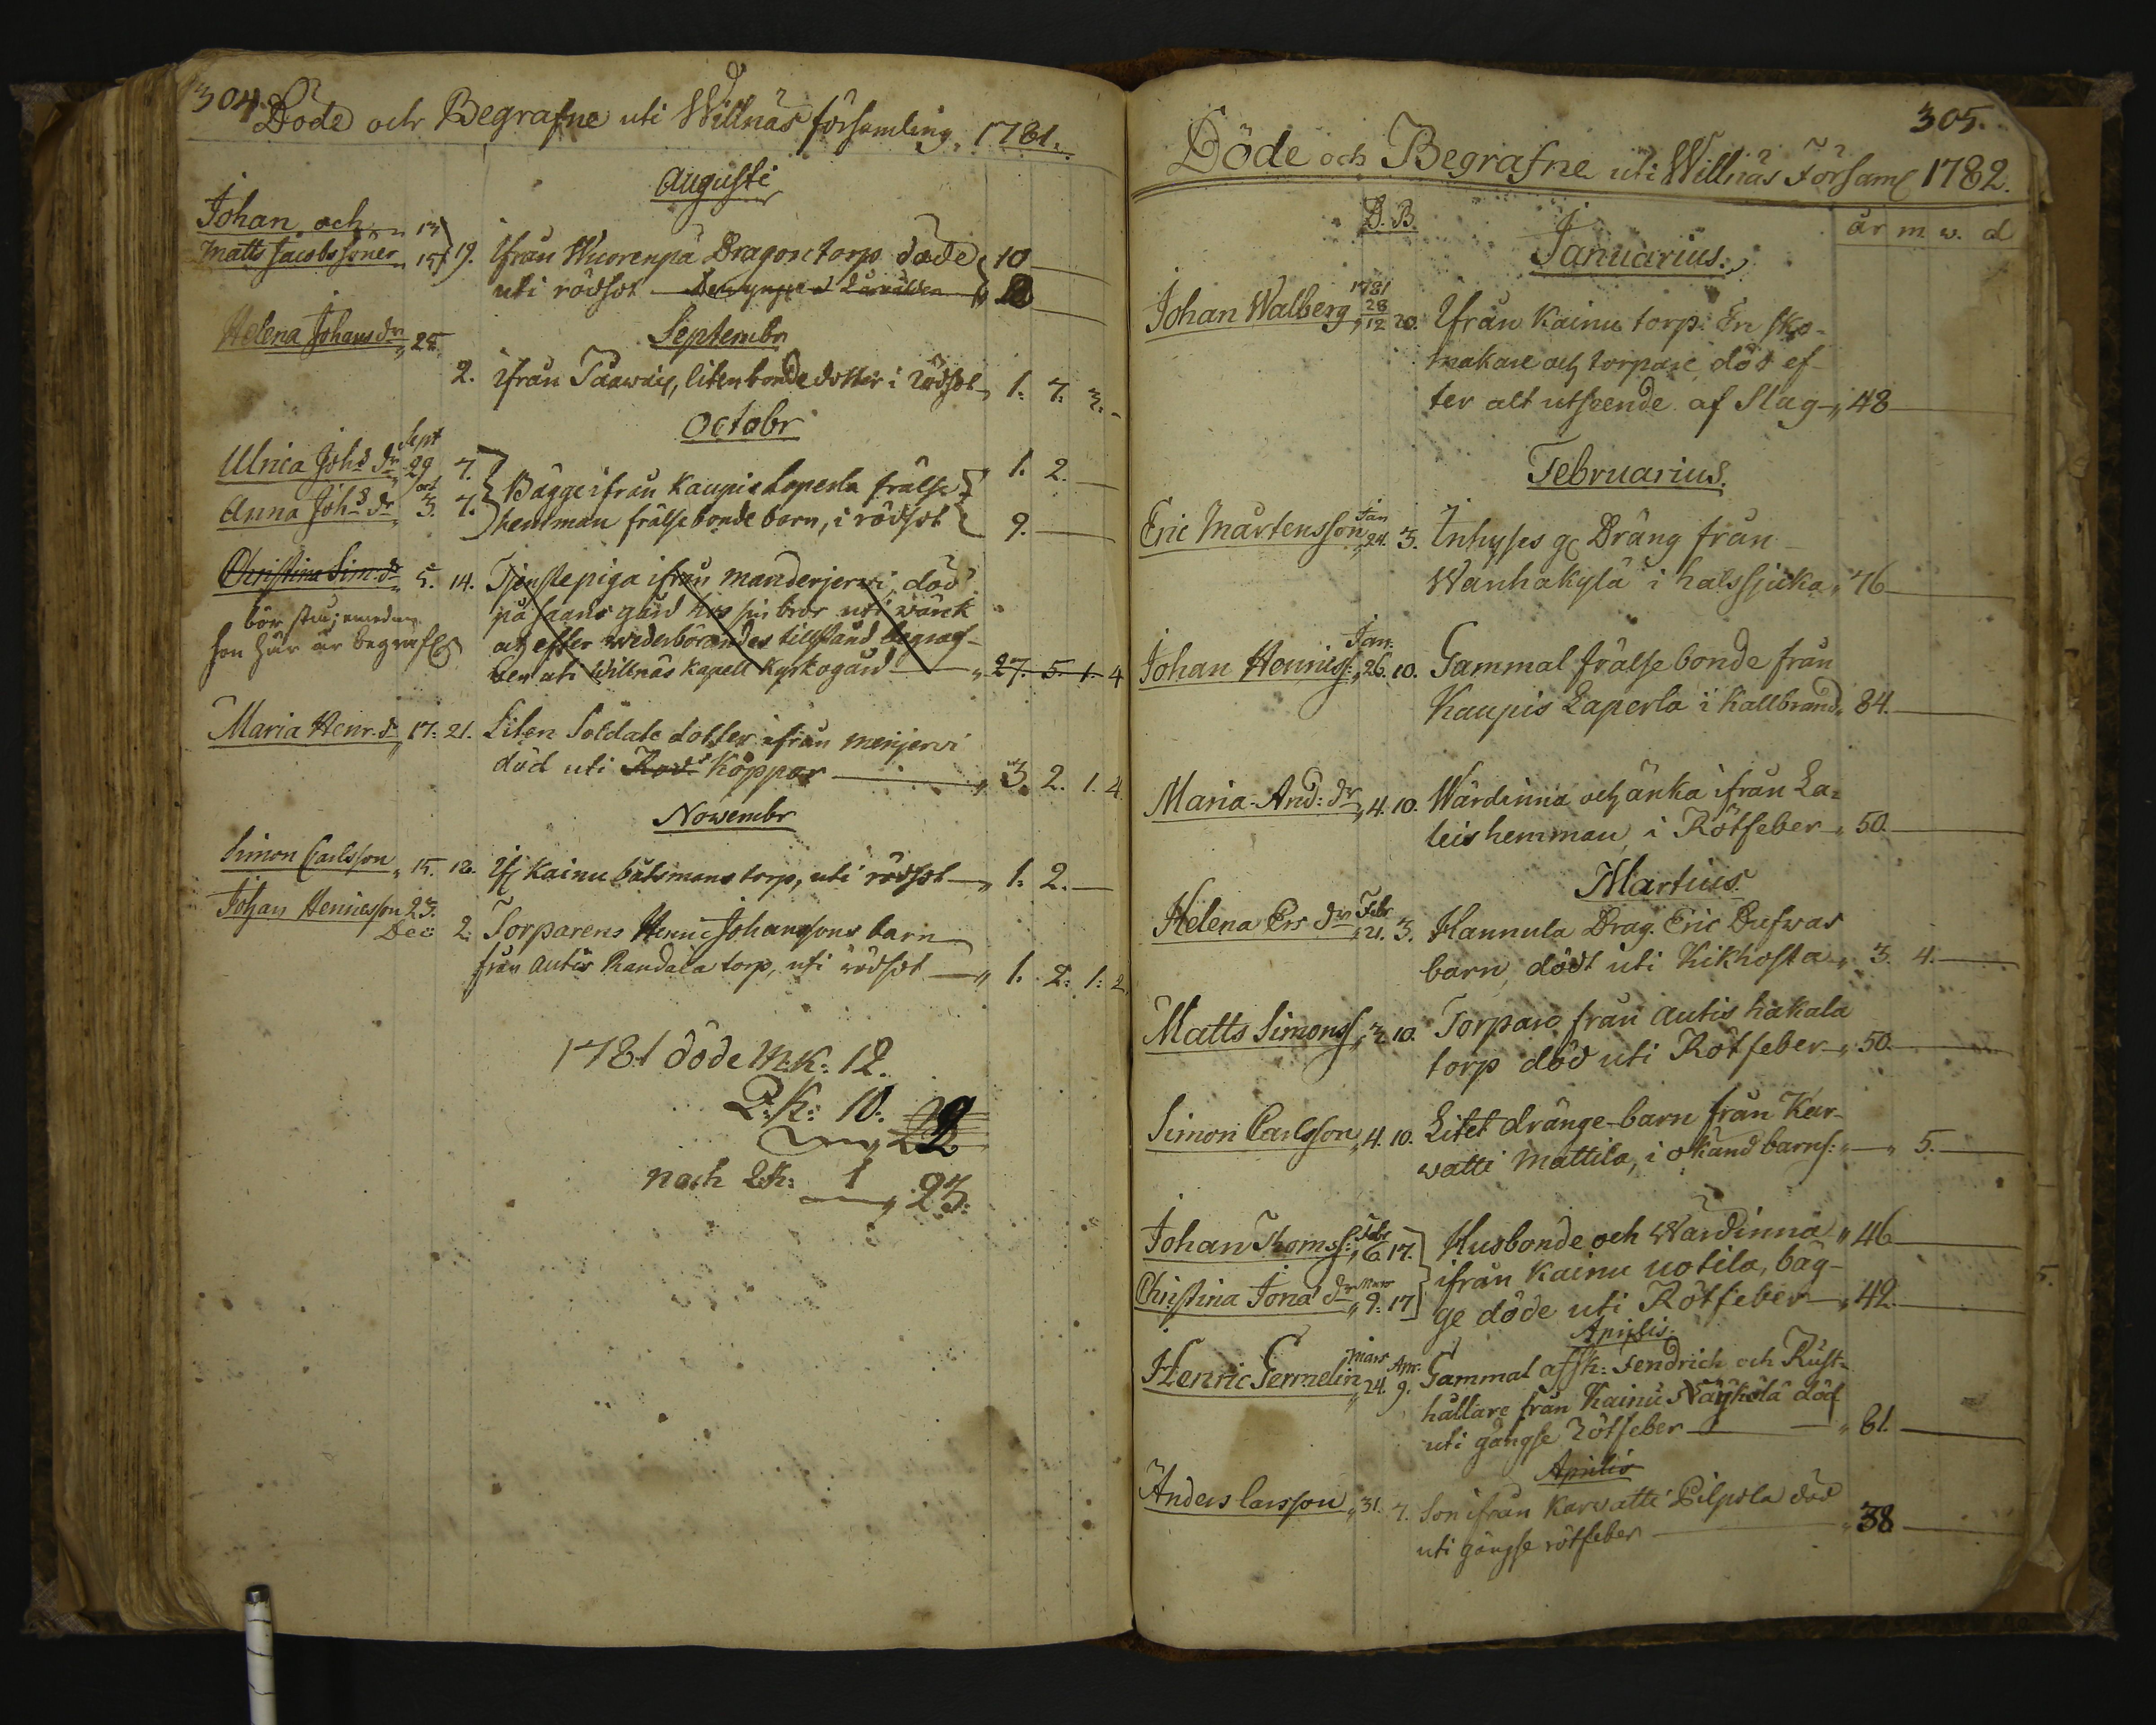 304.
Döde och Begrafne uti Willnäs församling, 1781.
Augusti
Johan och 13
Matts Jacobs söner 15 19. Ifrån Wuorenpä Dragon torp döde 10
uti rödsot
Septembr
Helena Johans dr 28.
2. ifrån liten bonde dotter i rödsot 1. 7. 3.
Octobr
Sept
Ulrica Johs dr 29 7. Bägge ifrån Kaupis Laperla frälse 1. 2.
oct
Anna Johs dr 3. 7. hemman frälsebonde barn, i rödsot 9.
Christina Sim. dr 5. 14. Tjenstepiga ifrån Manderjerwi, död
på gård hos sin bror uti wärk
och efter wederbörandes tillstånd begraf-
wen uti Willnäs kapell Kyrkogård 27. 5. 1. 4
bör stå; emedan
hon här är begrafn
Maria Henr. dr 17. 21. Liten Soldate dotter ifrån Menjerwi
död uti Röds Koppor 3. 2. 1. 4.
Nowembr
Simon Carlsson 15. 18. If Kainu båtsmans torp, uti rödsot 1. 2.
Johan Henricsson 23.
Dec: 2. Torparens Henric Johanssons barn
från Autis Randala torp, uti rödsot 1. 2. 1. 2.
1781 döde M:K: 12.
Q:K: 10. 22
22
noch Q:K: 1
23.
305.
Döde och Begrafne uti Willnäs Församl 1782.
D. B.
år m w. d
Januarius.
1781
Johan Walberg 28/12 20. Ifrån Kainu torp. En sko-
makare och torpare, död ef-
ter alt utseende af Slag 48
Februarius.
Jan
Eric Mårtensson 24. 3. Inhyses g Dräng från
Wanhakylä i halssjuka 76
Jan:
Johan Henrics: 26. 10. Gammal frälse bonde från
Kaupis Laperla i Kallbrand 84.
Maria And: dr 4. 10. Wärdinna och änka ifrån La-
leis hemman, i Rötfeber 50.
Martius.
Febr
Helena Ers dr 21. 3. Hannula Drag. Eric Dufwas
barn, dödt uti Kikhosta 3. 4.
Matts Simons 3. 10. Torpare från Autis hakala
torp död uti Rötfeber 50.
Simon Carlsson 4. 10. Litet dränge-barn från Kar-
watti Mattila, i okänd barns: 5.
Febr
Johan Thomss: 6 17. Husbonde och Wärdinna 46
ifrån Kainu uotila, bäg-
Mars
Christina Jona dr 9. 17 ge döde uti Rötfeber 42.
Aprilis.
Mars Apr.
Henric Fermelin 24. 9. Gammal afsk: Fendrich och Rust-
hållare från Kainu Näykölä död
uti gängse Rötfeber 61.
Aprilis
Anders Larsson 31. 7. Son ifrån Karwatti Pilpola död
uti gängse rötfeber 38.